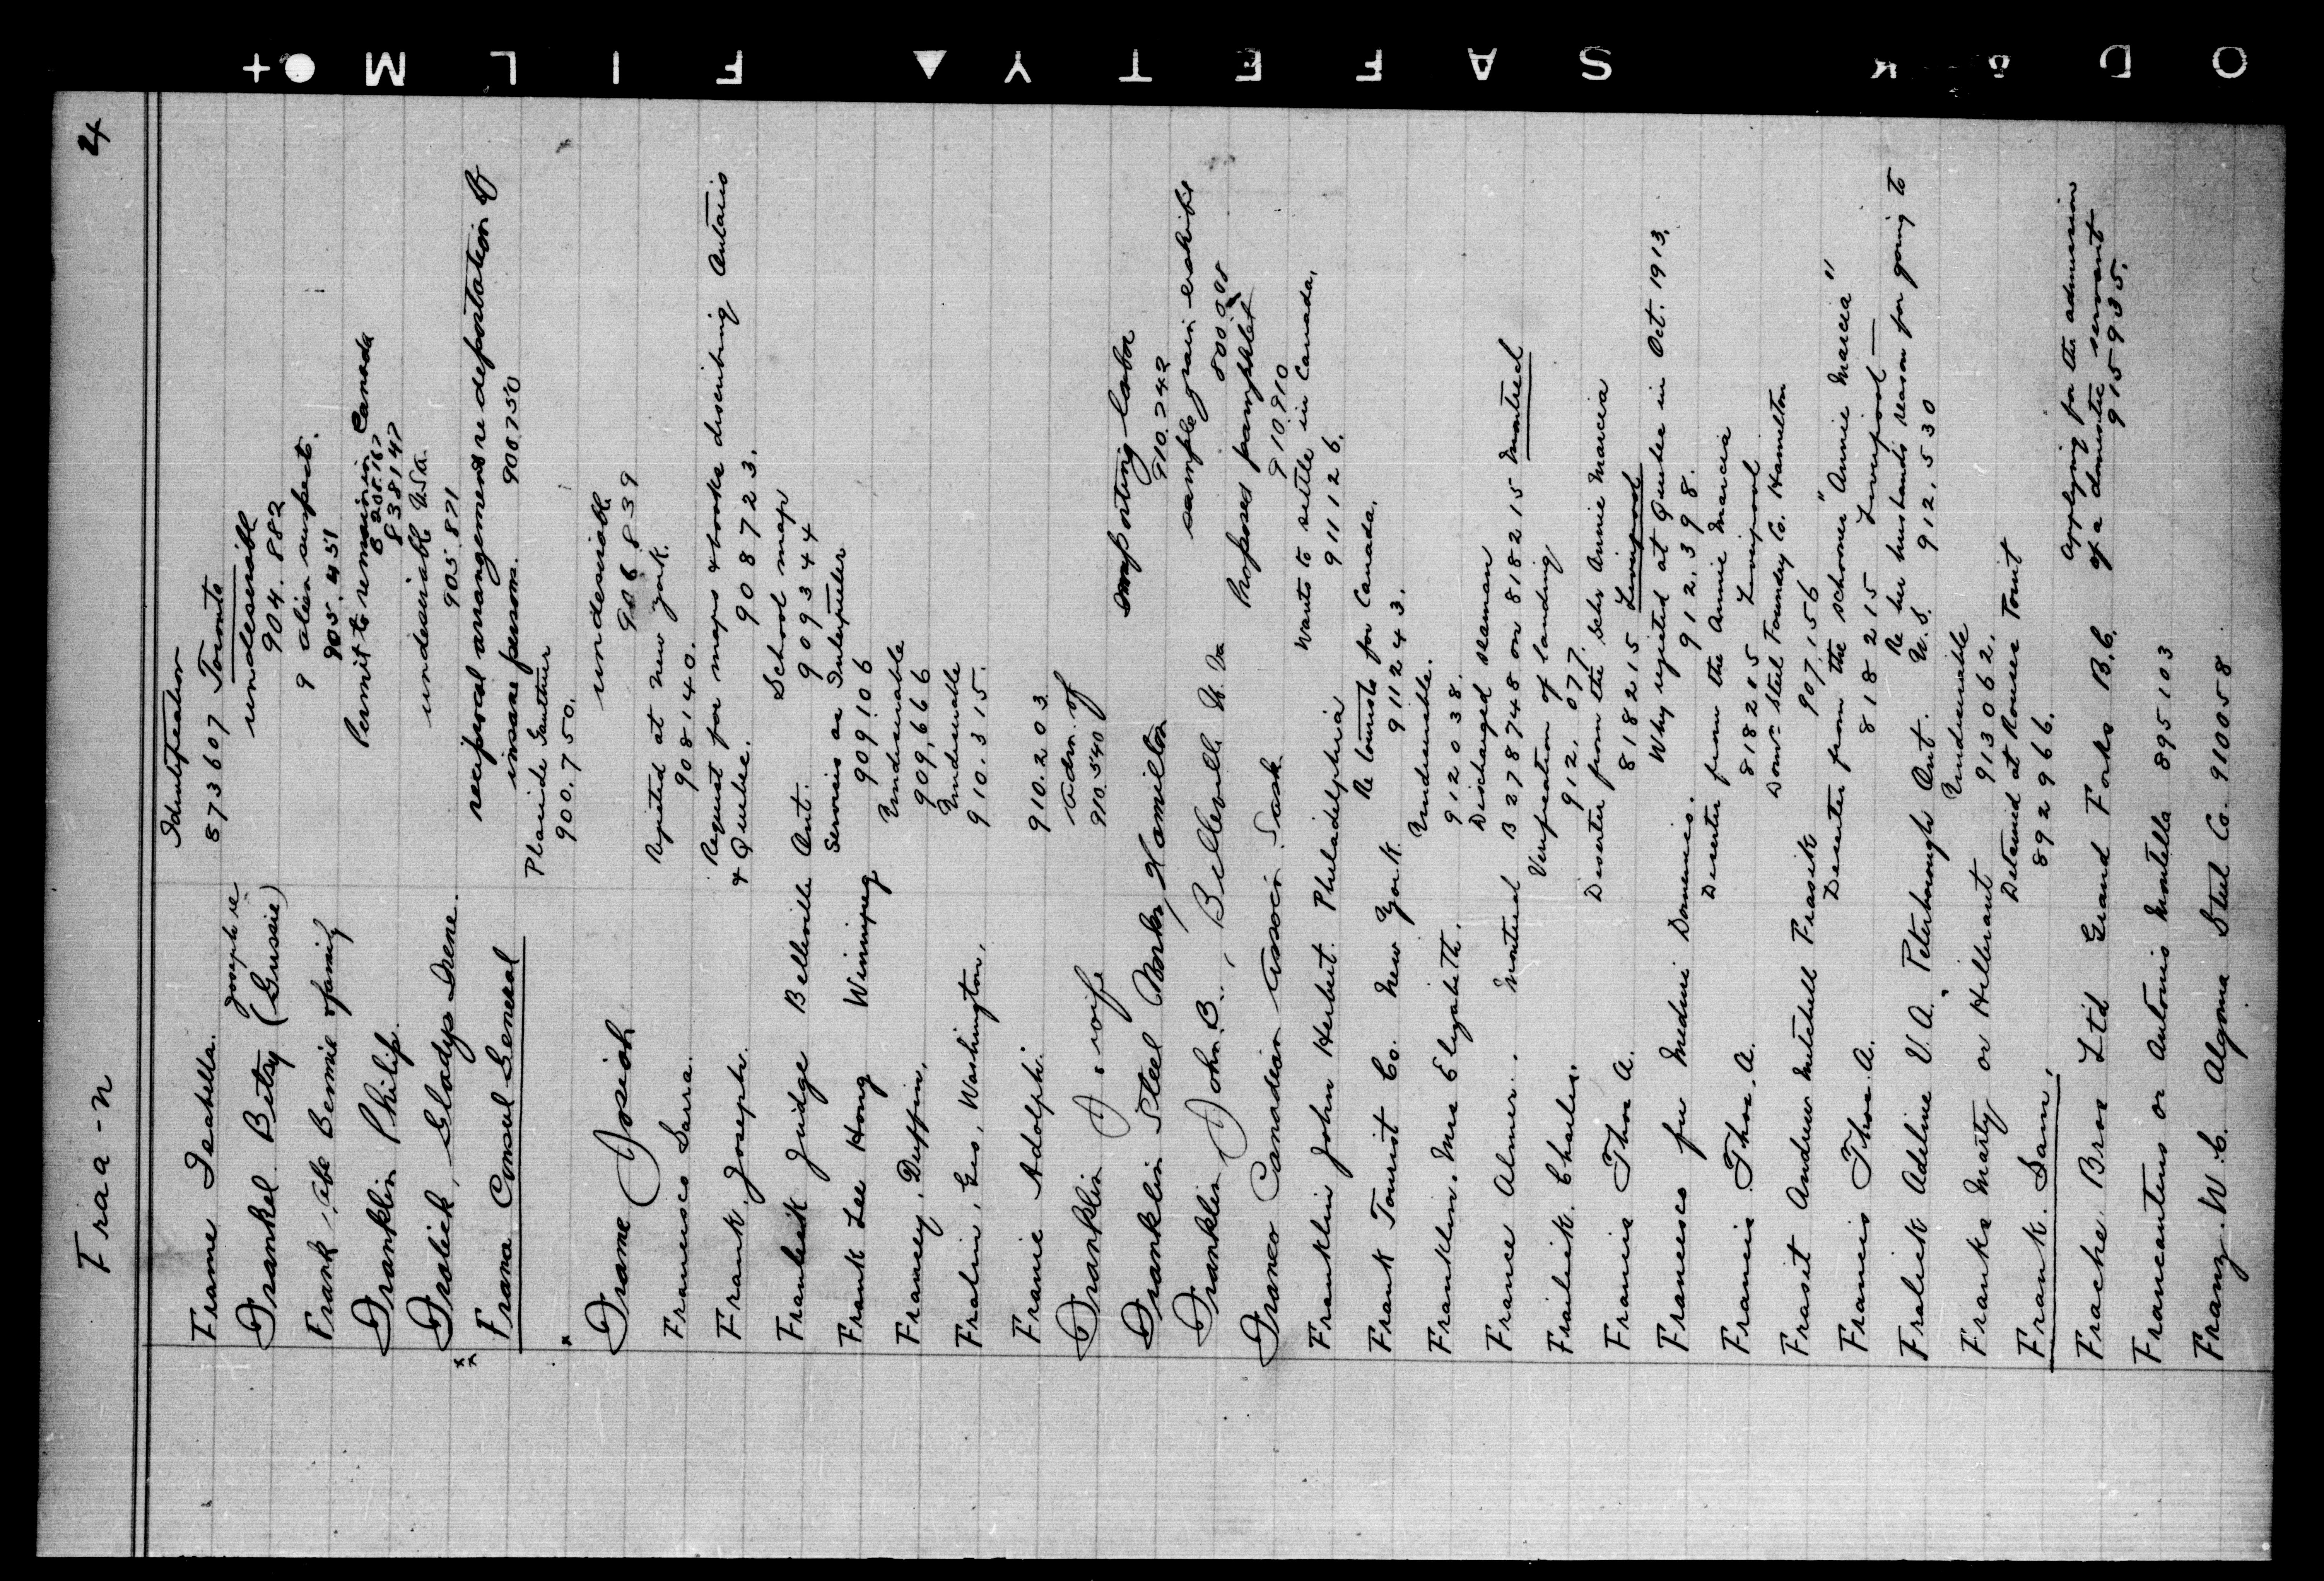 Fraa-n
4
Identification
Frame Isabella. 873607 Toronto
Joseph re
undesirable
Frankel. Betsy (Gussie) 904.882
9 alien suspects.
Frank, Abe Bennie & family 905.451
Permit to remain in Canada
Franklin Philip. 838147
undesirable U.S.A.
Frolick, Gladys Irene. 905.871
reciprocal arrangements re deportation of
Frana Consul General insane persons. 900750
Placide
900.750.
undesirable
Frame Josiah 906839
Rejected at New York.
Francesco Saura. 908140.
Request for maps & books describing Ontario
Frank. Joseph. & Quebec. 908723.
School map
Judge Belleville Ont. 909344
Services as Interpreter
Frank Lee Hong Winnipeg 909106
Undesirable
Francey, Duffin, 909,666
Undesirable
Fralin, Geo, Washington, 910.315.
Franie Adolph. 910.203.
Adm. of
Franklin J. wife 910.540
Importing labor
Franklin Steel Works, Hamilton 910.242
sample grain exhibit
Franklin John. B., Belleville 800
Proposes pamphlet
Franco Canadian Assocn. Sask. 910.910
Wants to settle in Canada.
Franklin John Herbert. Philadelphia 911126.
Re Tourists for Canada.
Frank Tourist Co. New York 911243.
Undesirable.
Franklin. Mrs Elizabeth. 912038.
Discharged seaman
France Almer. Montreal B 278748 on 818215 Montreal
Verification of landing
Frailick. Charles. 912.077.
Deserter from the Schr Annie Marcia
Francis Thos A. 818215 Liverpool
Why rejected at Quebec in Oct. 1913.
Francesco fu Medini Domenico. 912.398.
Deserter from the Annie Marcia
Francis Thos. A. 818215 Liverpool
Domn Steel Foundry Co. Hamilton
Frasit Andrew Mitchell Frasik 907,156
Deserter from the schooner "Annie Marcia"
Francis Thos A. 818215 Liverpool
Re her husbands reason for going to
Fralick Adeline V.A. Peterborough Ont. U.S. 912.530
Undesirable
Franks Marty or Hillerant 913062.
Detained at Rouses Point
Frank. Sam. 892966.
Applying for the admission
Frache Bros Ltd Grand Forks B.C. of a domestic servant
915935.
Francantuns or Antonis Montella 895103
Franz. W.C. Algoma Steel Co. 910058
SAFETY FILM
KODAK